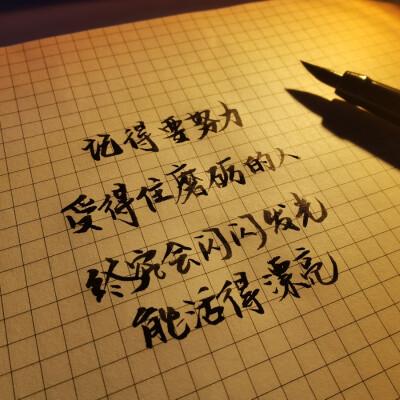 记得要努力
受得住磨砺的人
终究会闪闪发光
能活得漂亮